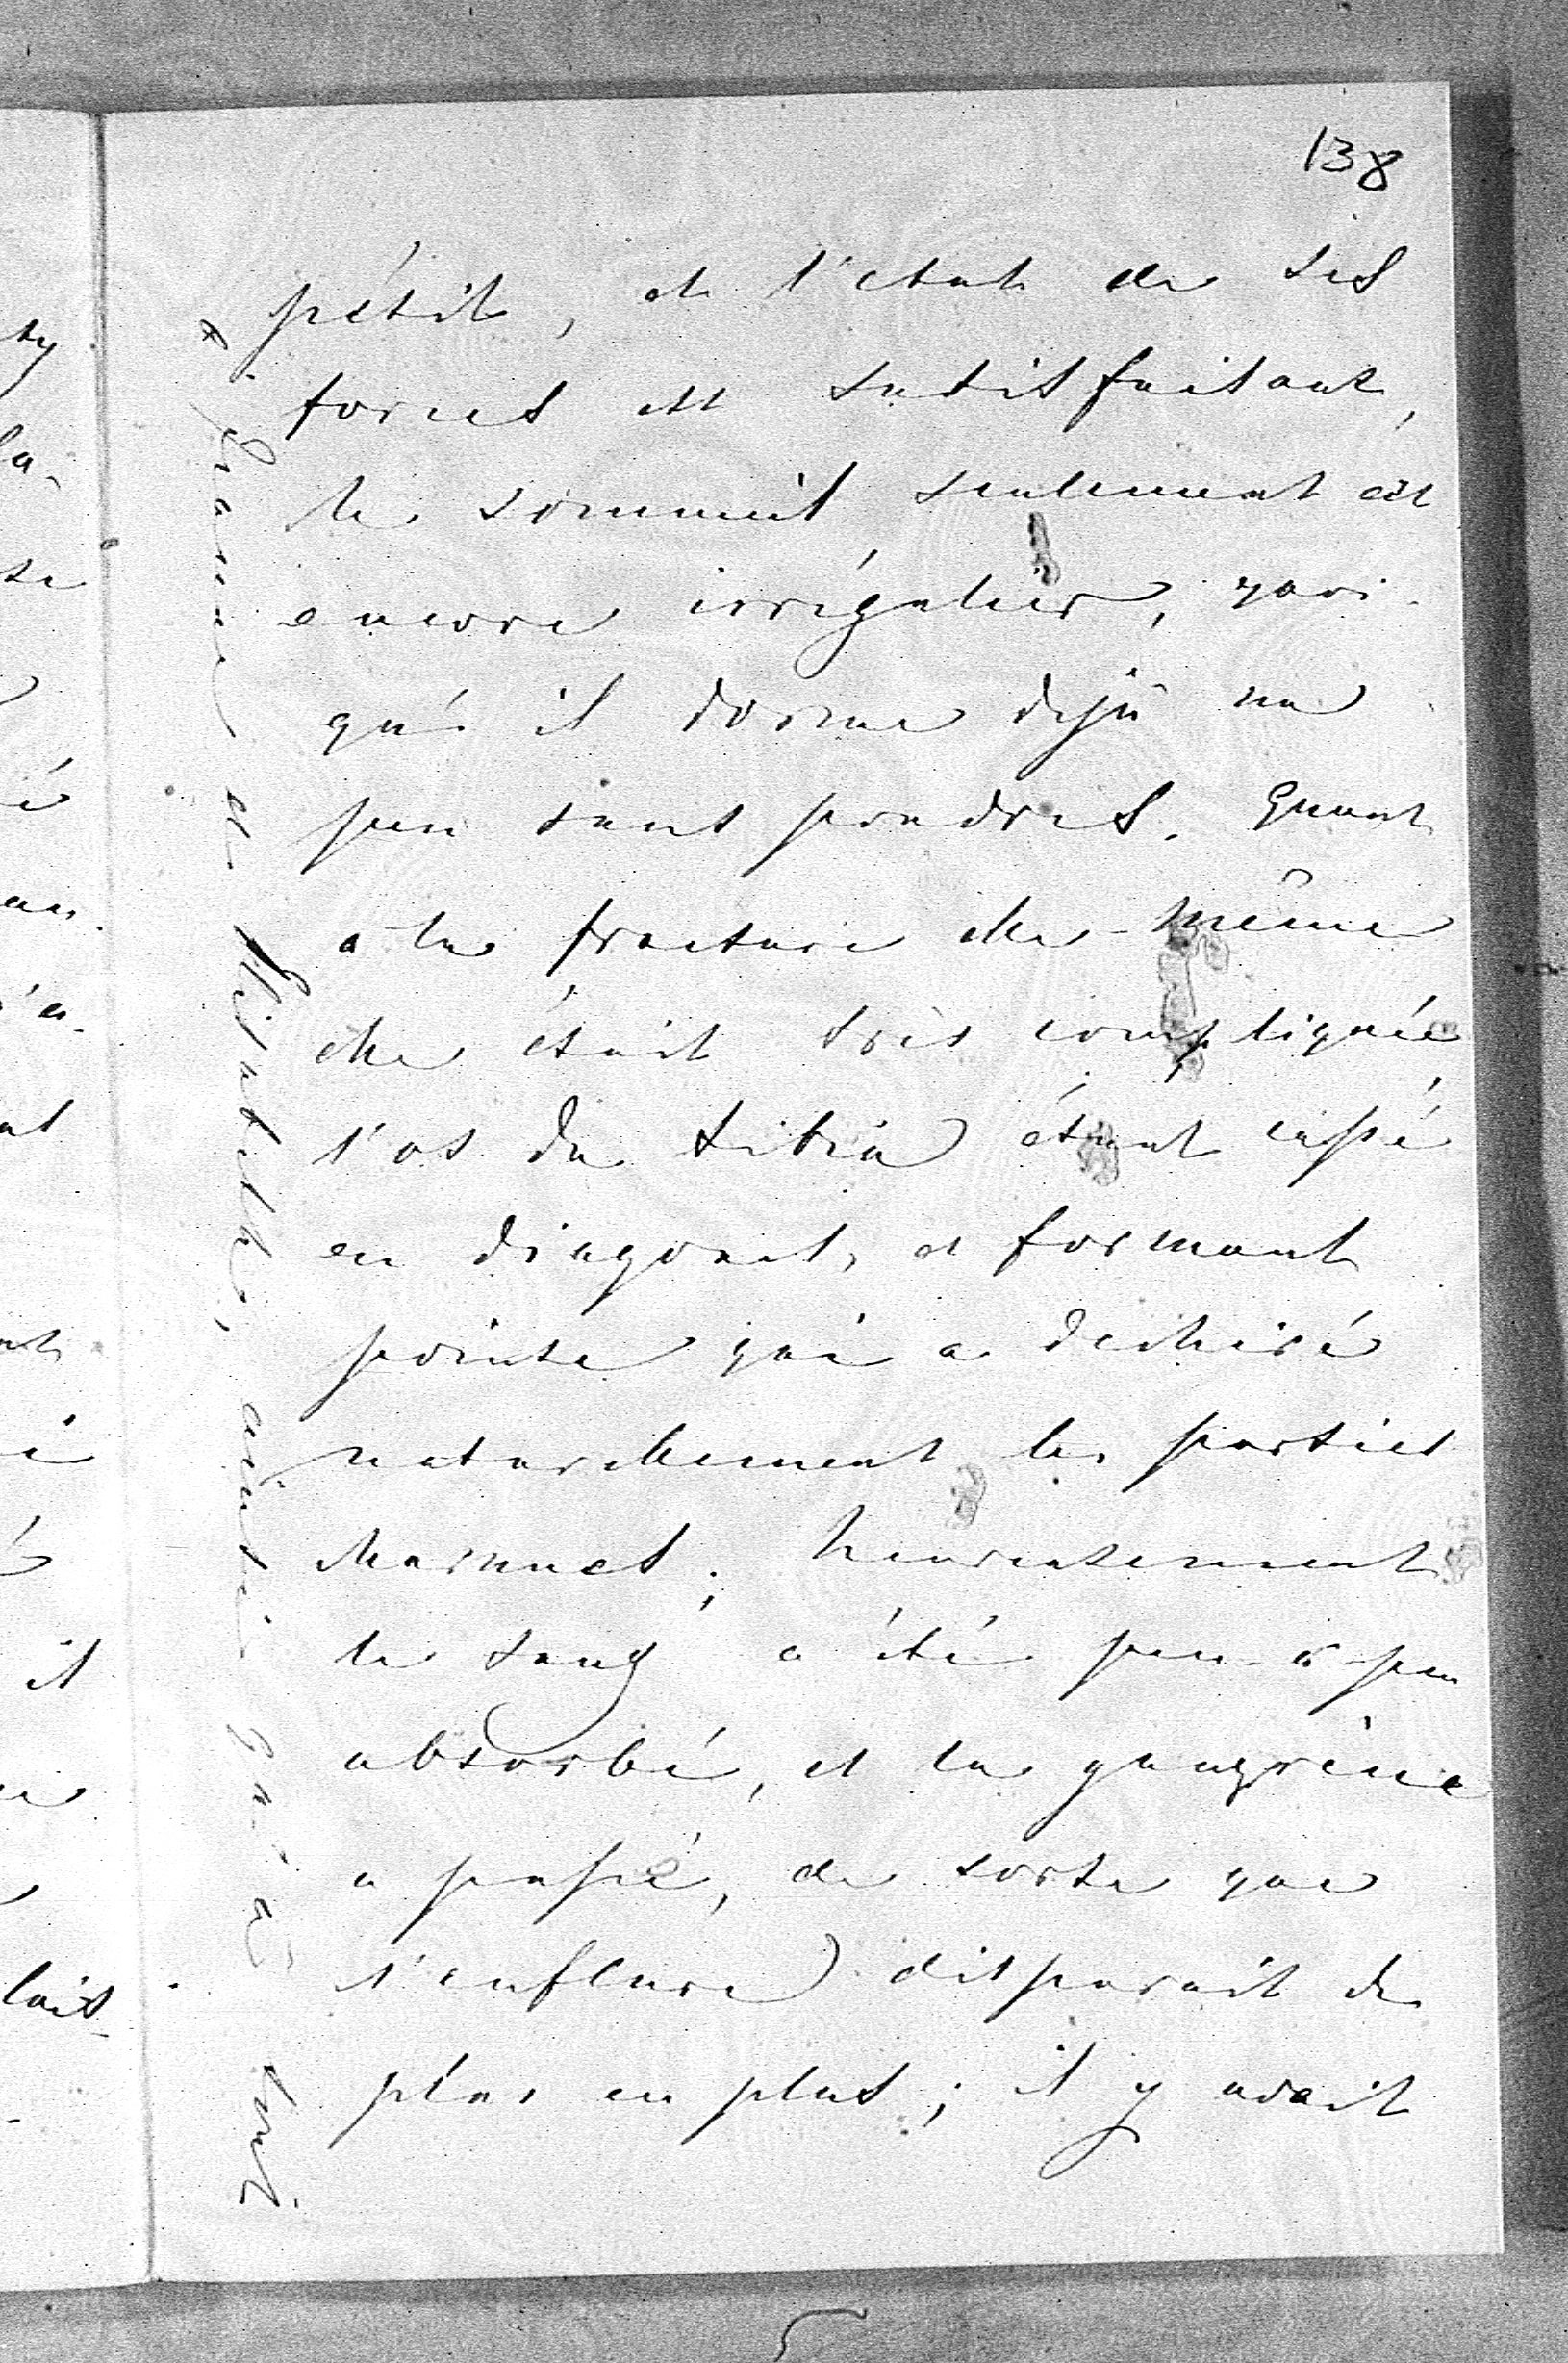 138
pétit, et l'état de ses
forces est satisfaisant,
le sommeil seulement est
encore irrégulier, quoi-
qu'il dorme déjà un
peu sans poudres. Quant
a la fracture elle-même
elle était très compliquée
l'os du tibia étant cassé
en diagonal, et formant
pointe qui a dechiré
naturellement les parties
charnues; heureusement
le sang a été peu-à-peu
absorbé, et la gangrène
a passé, de sorte que
l'enflure disparait de
plus en plus; il y avait
et Elisabeth, ainsi qu'à